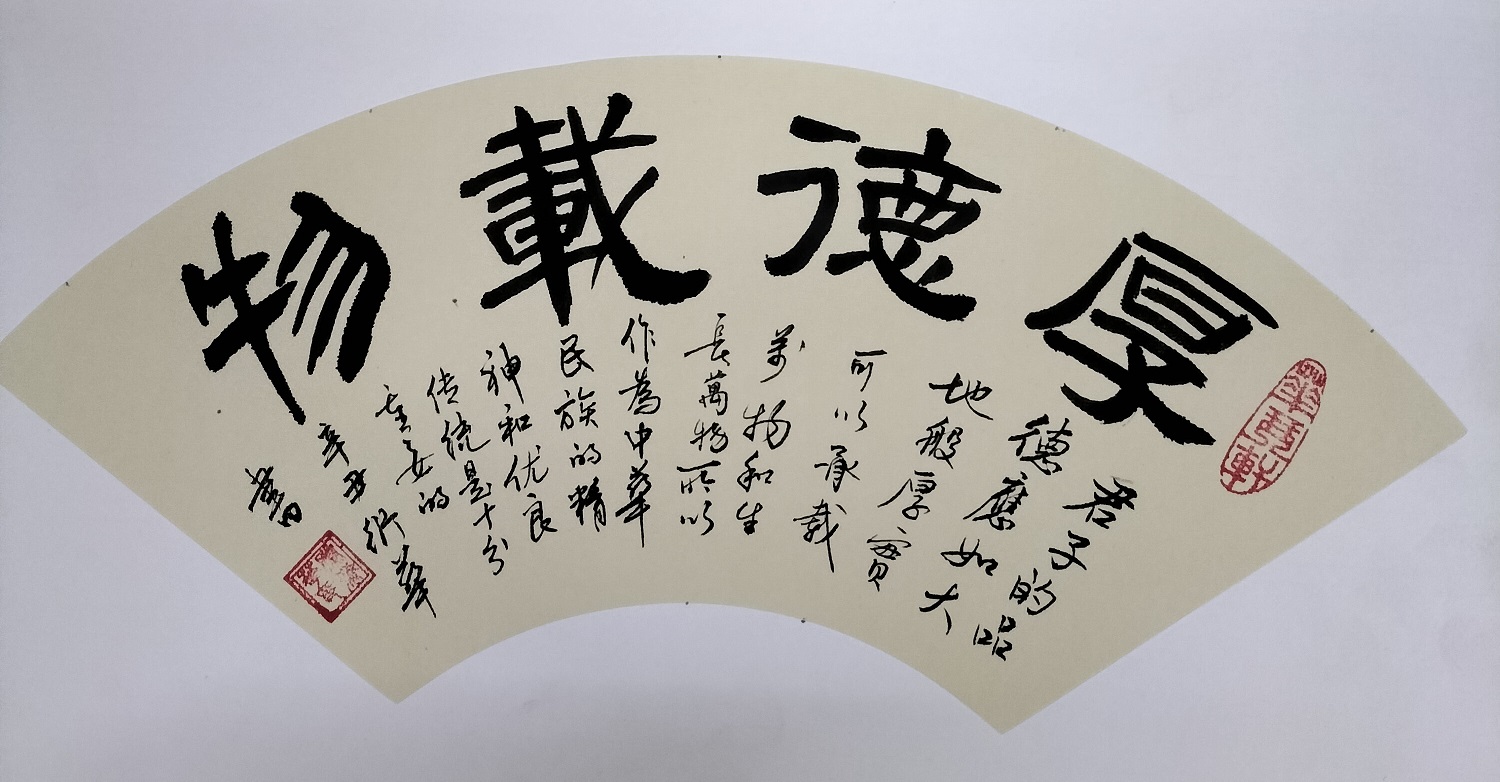 厚德載物
君子的品
德應如大
地般厚實
可以承载
萬物和生
長萬物所以
作為中華
民族的精
神和优良
传统是十分
重要的
辛丑
書